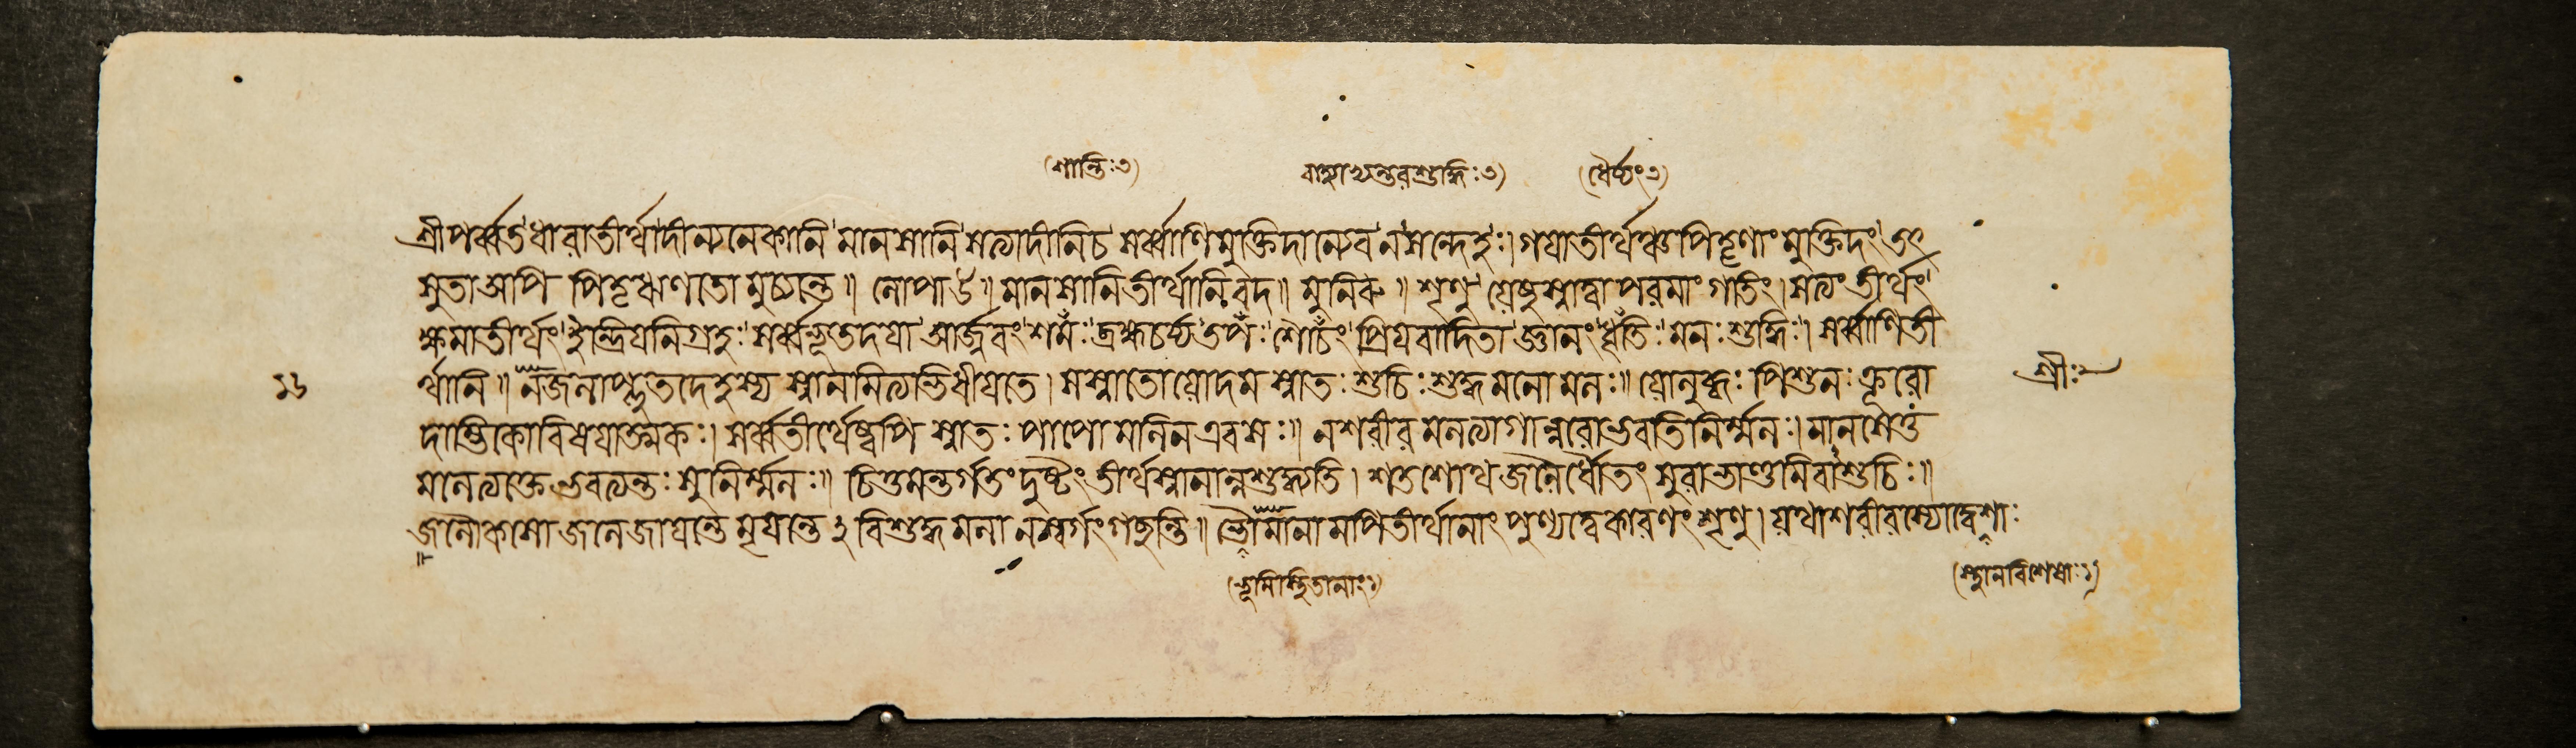 (শান্তিঃ৩) বাহ্যাভ্যন্তরশুদ্ধিঃ৩) (ধৈর্য্যং৩)
শ্রীপর্ব্বতধারাতীর্থাদীন্যনেকানি মানসানি সত্যাদীনিচ সর্ব্বাণিমুক্তিদান্যেব ন সন্দেহঃ। গয়াতীর্থঞ্চ পিতৄণাং মুক্তিদং তৎ
সুতাঅপি পিতৃঋণাতো মুচ্যন্তে॥ লোপা৬॥ মানসানিতীর্থানিবদ॥ মুনিরু॥ শৃণু যেষুস্নাত্বা পরমাং গতিং। সত্যং তীর্থং
ক্ষমাতীর্থং ইন্দ্রিয়নিগ্রহঃ সর্ব্বভূতদয়া আর্জবং শমঃ ব্রহ্মচর্য্য তপঃ শৌচং প্রিয়বাদিতা জ্ঞানং ধৃতিঃ মনঃশুদ্ধিঃ। সর্ব্বাণিতী
১৬ র্থানি॥ নজলাপ্লুতদেহস্য স্নানমিত্যভিধীয়তে। সস্নাতোয়োদমস্নাতঃ শুচিঃ শুদ্ধমনোমলঃ॥ য়োলুব্ধঃ পিশুনঃ ক্রূরো শ্রীঃ
দাম্ভিকোবিষয়াত্মকঃ। সর্ব্বতীর্থেষ্বপি স্নাতঃ পাপো মলিনএবসঃ॥ নশরীরমলত্যাগান্নরোভবতিনির্ম্মলঃ। মানসেতু
মলেত্যক্তে ভবত্যন্তঃ সুনির্ম্মলঃ॥ চিত্তমন্তর্গতং দুষ্টং তীর্থস্নানান্নশুদ্ধ্যতি। শতশোথ জলৈর্ধৌতং সুরাভাণ্ডমিবাশুচিঃ॥
জলৌকসো জলেজায়ন্তে মৃয়ন্তে ২ বিশুদ্ধমলা নস্বর্গংগচ্ছন্তি॥ ভৌমানামপিতীর্থানাং পুণ্যত্বেকারণং শৃণু। য়থাশরীরস্যোদ্দেশাঃ
(ভূমিস্থিতানাং২) (স্থানবিশেষাঃ১)